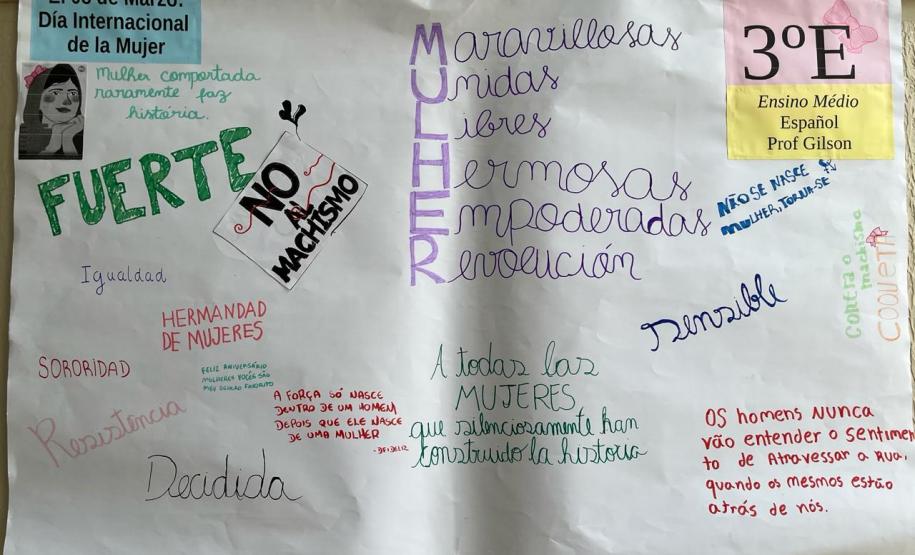 El 08 de Marzo:
Día Internacional
de la Mujer
Mulher comportada
raramente faz
história.
FUERTE
NO
AL
MACHISMO
Igualdad
HERMANDAD
DE MUJERES
SORORIDAD
FELIZ ANIVERSÁRIO
MULHERES VOCÊS SÃO
MEU GÊNERO FAVORITO
Resistência
Decidida
A FORÇA SÓ NASCE
DENTRO DE UM HOMEM
DEPOIS QUE ELE NASCE
DE UMA MULHER
Maravillosas
Unidas
Libres
Hermosas
Empoderadas
Revolución
A todas las
MUJERES
que silenciosamente han
construido la historia
3ºE
Ensino Médio
Español
Prof Gilson
NÃO SE NASCE
MULHER, TORNA-SE
Contra o
machismo
COQUETA
Sensible
OS homens NUNCA
vão entender o sentimen
to de Atravessar a Rua,
quando os mesmos estão
atrás de nós.